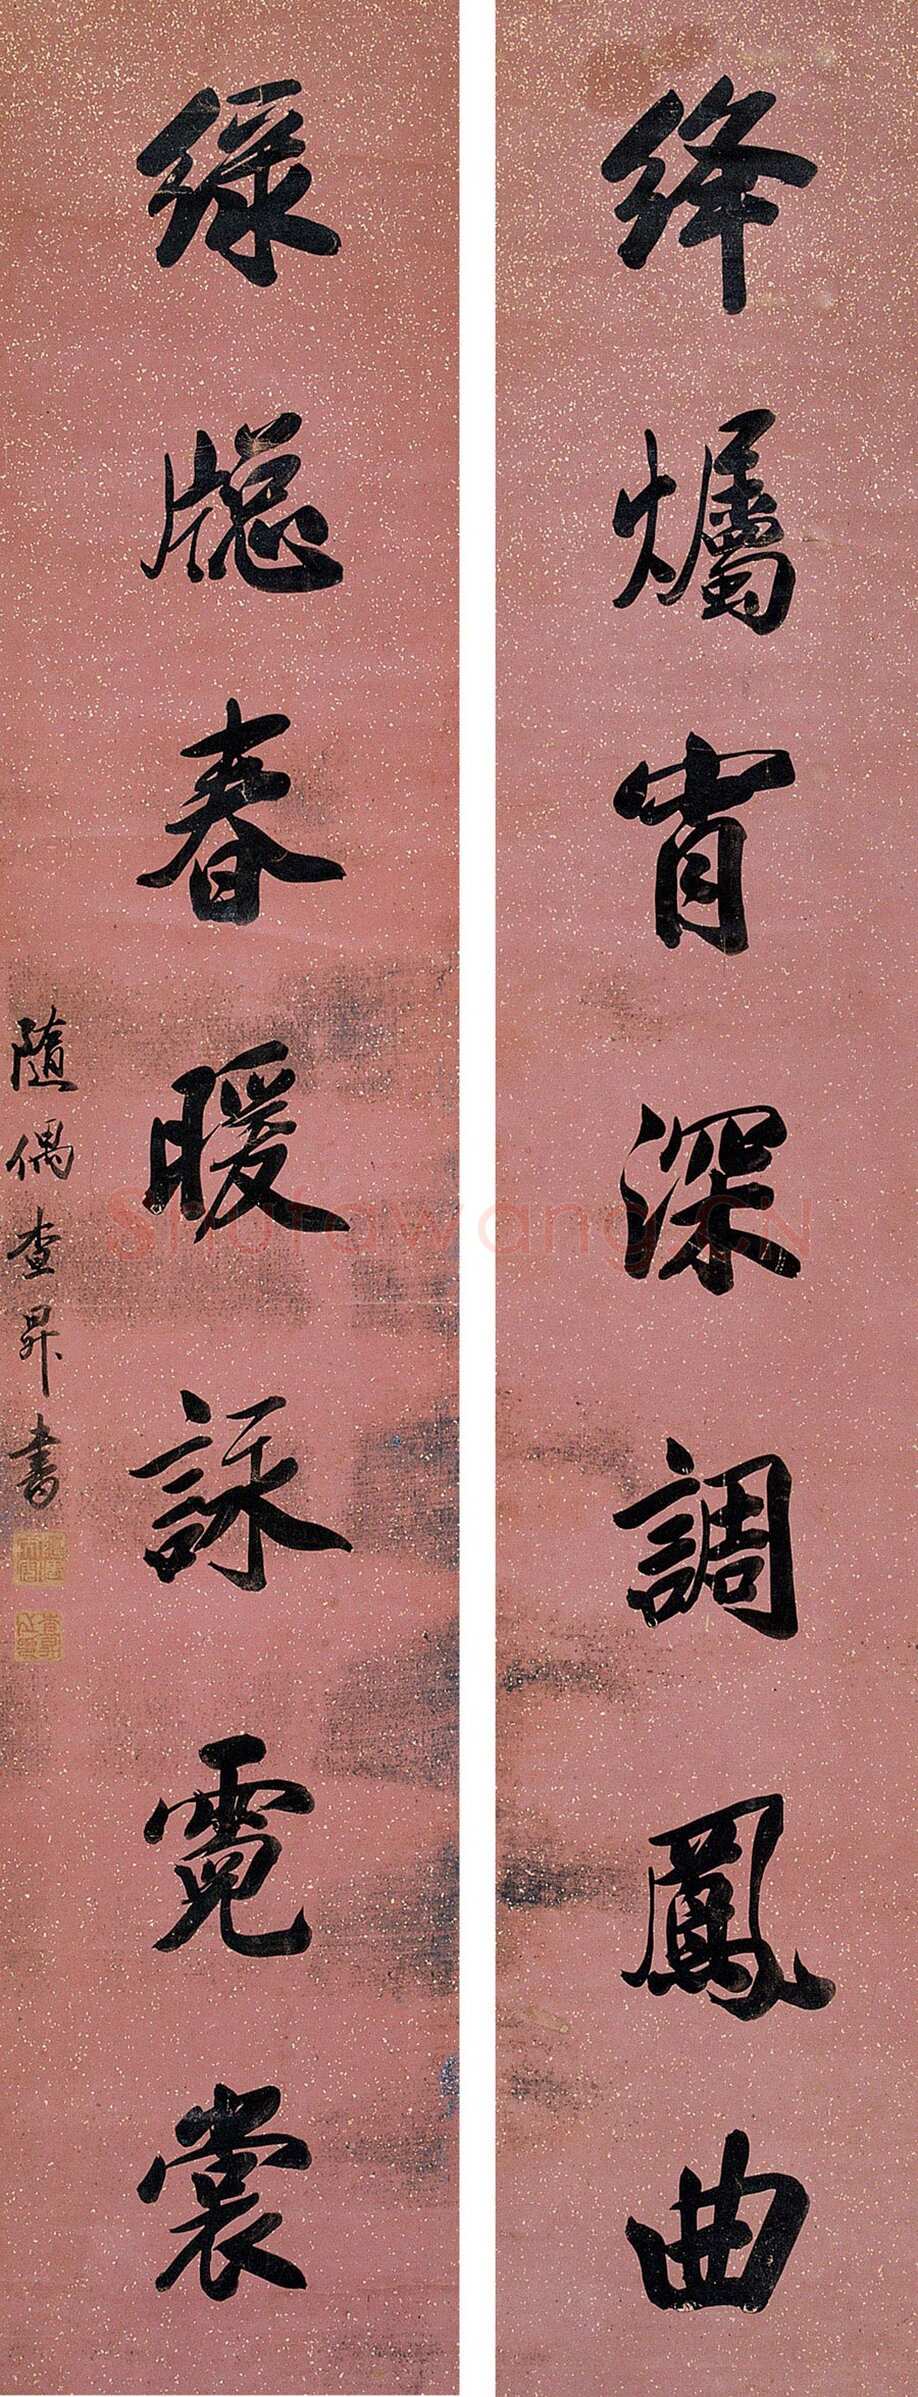 絳爥宵深調鳳曲
綠牎春暖詠霓裳
隨偶查昇書
Shufawang.CN